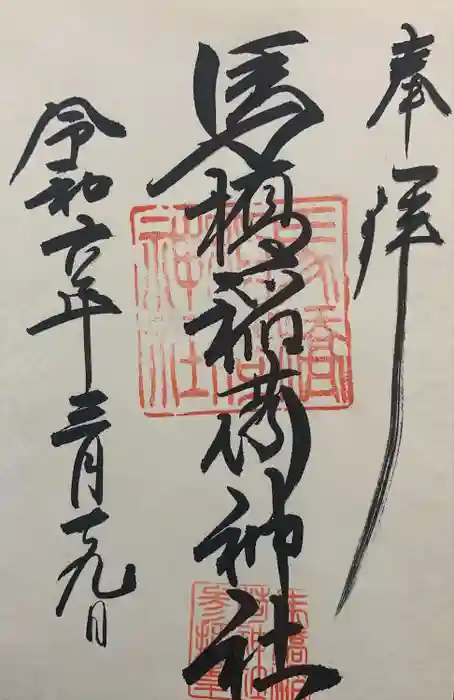 奉拝
馬橋稲荷神社
令和六年三月十九日